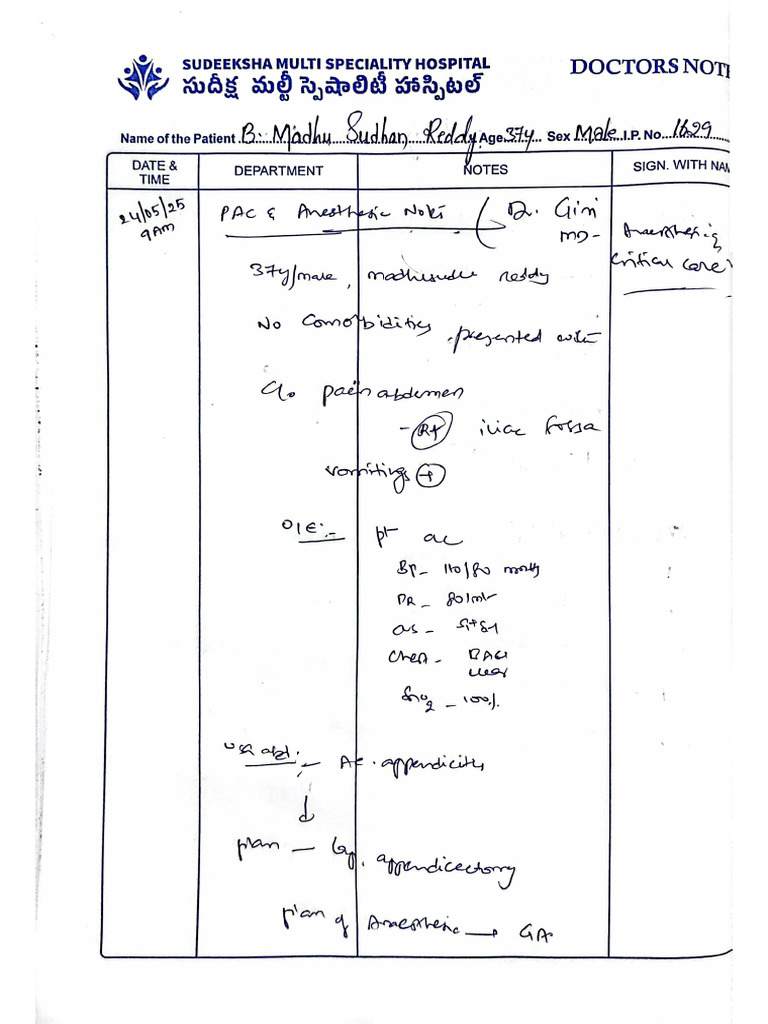 SUDEEKSHA MULTI SPECIALITY HOSPITAL
సుదీక్ష మల్టీ స్పెషాలిటీ హాస్పిటల్
DOCTORS NOT
Name of the Patient B. Madhu Sudhan Reddy Age 37y Sex Male I.P. No. 1629
DATE & TIME DEPARTMENT NOTES SIGN. WITH NAM
24/05/25
9AM
PAC & Anesthesic Notes
Dr. Giri
MD-
Anaesthesia
critical care
37y/male, madhusudan reddy
No comorbidities, presented with
c/o pain abdomen
- Rt iliac fossa
vomitings +
O/E:- pt
BP- 110/80 mmHg
PR- 80/mt
S1+S2+
Chest- BAE
clear
SpO2 - 100%
USG abd:- Ac. appendicitis
↓
plan - lap. appendicectomy
plan of Anaesthesia → GA